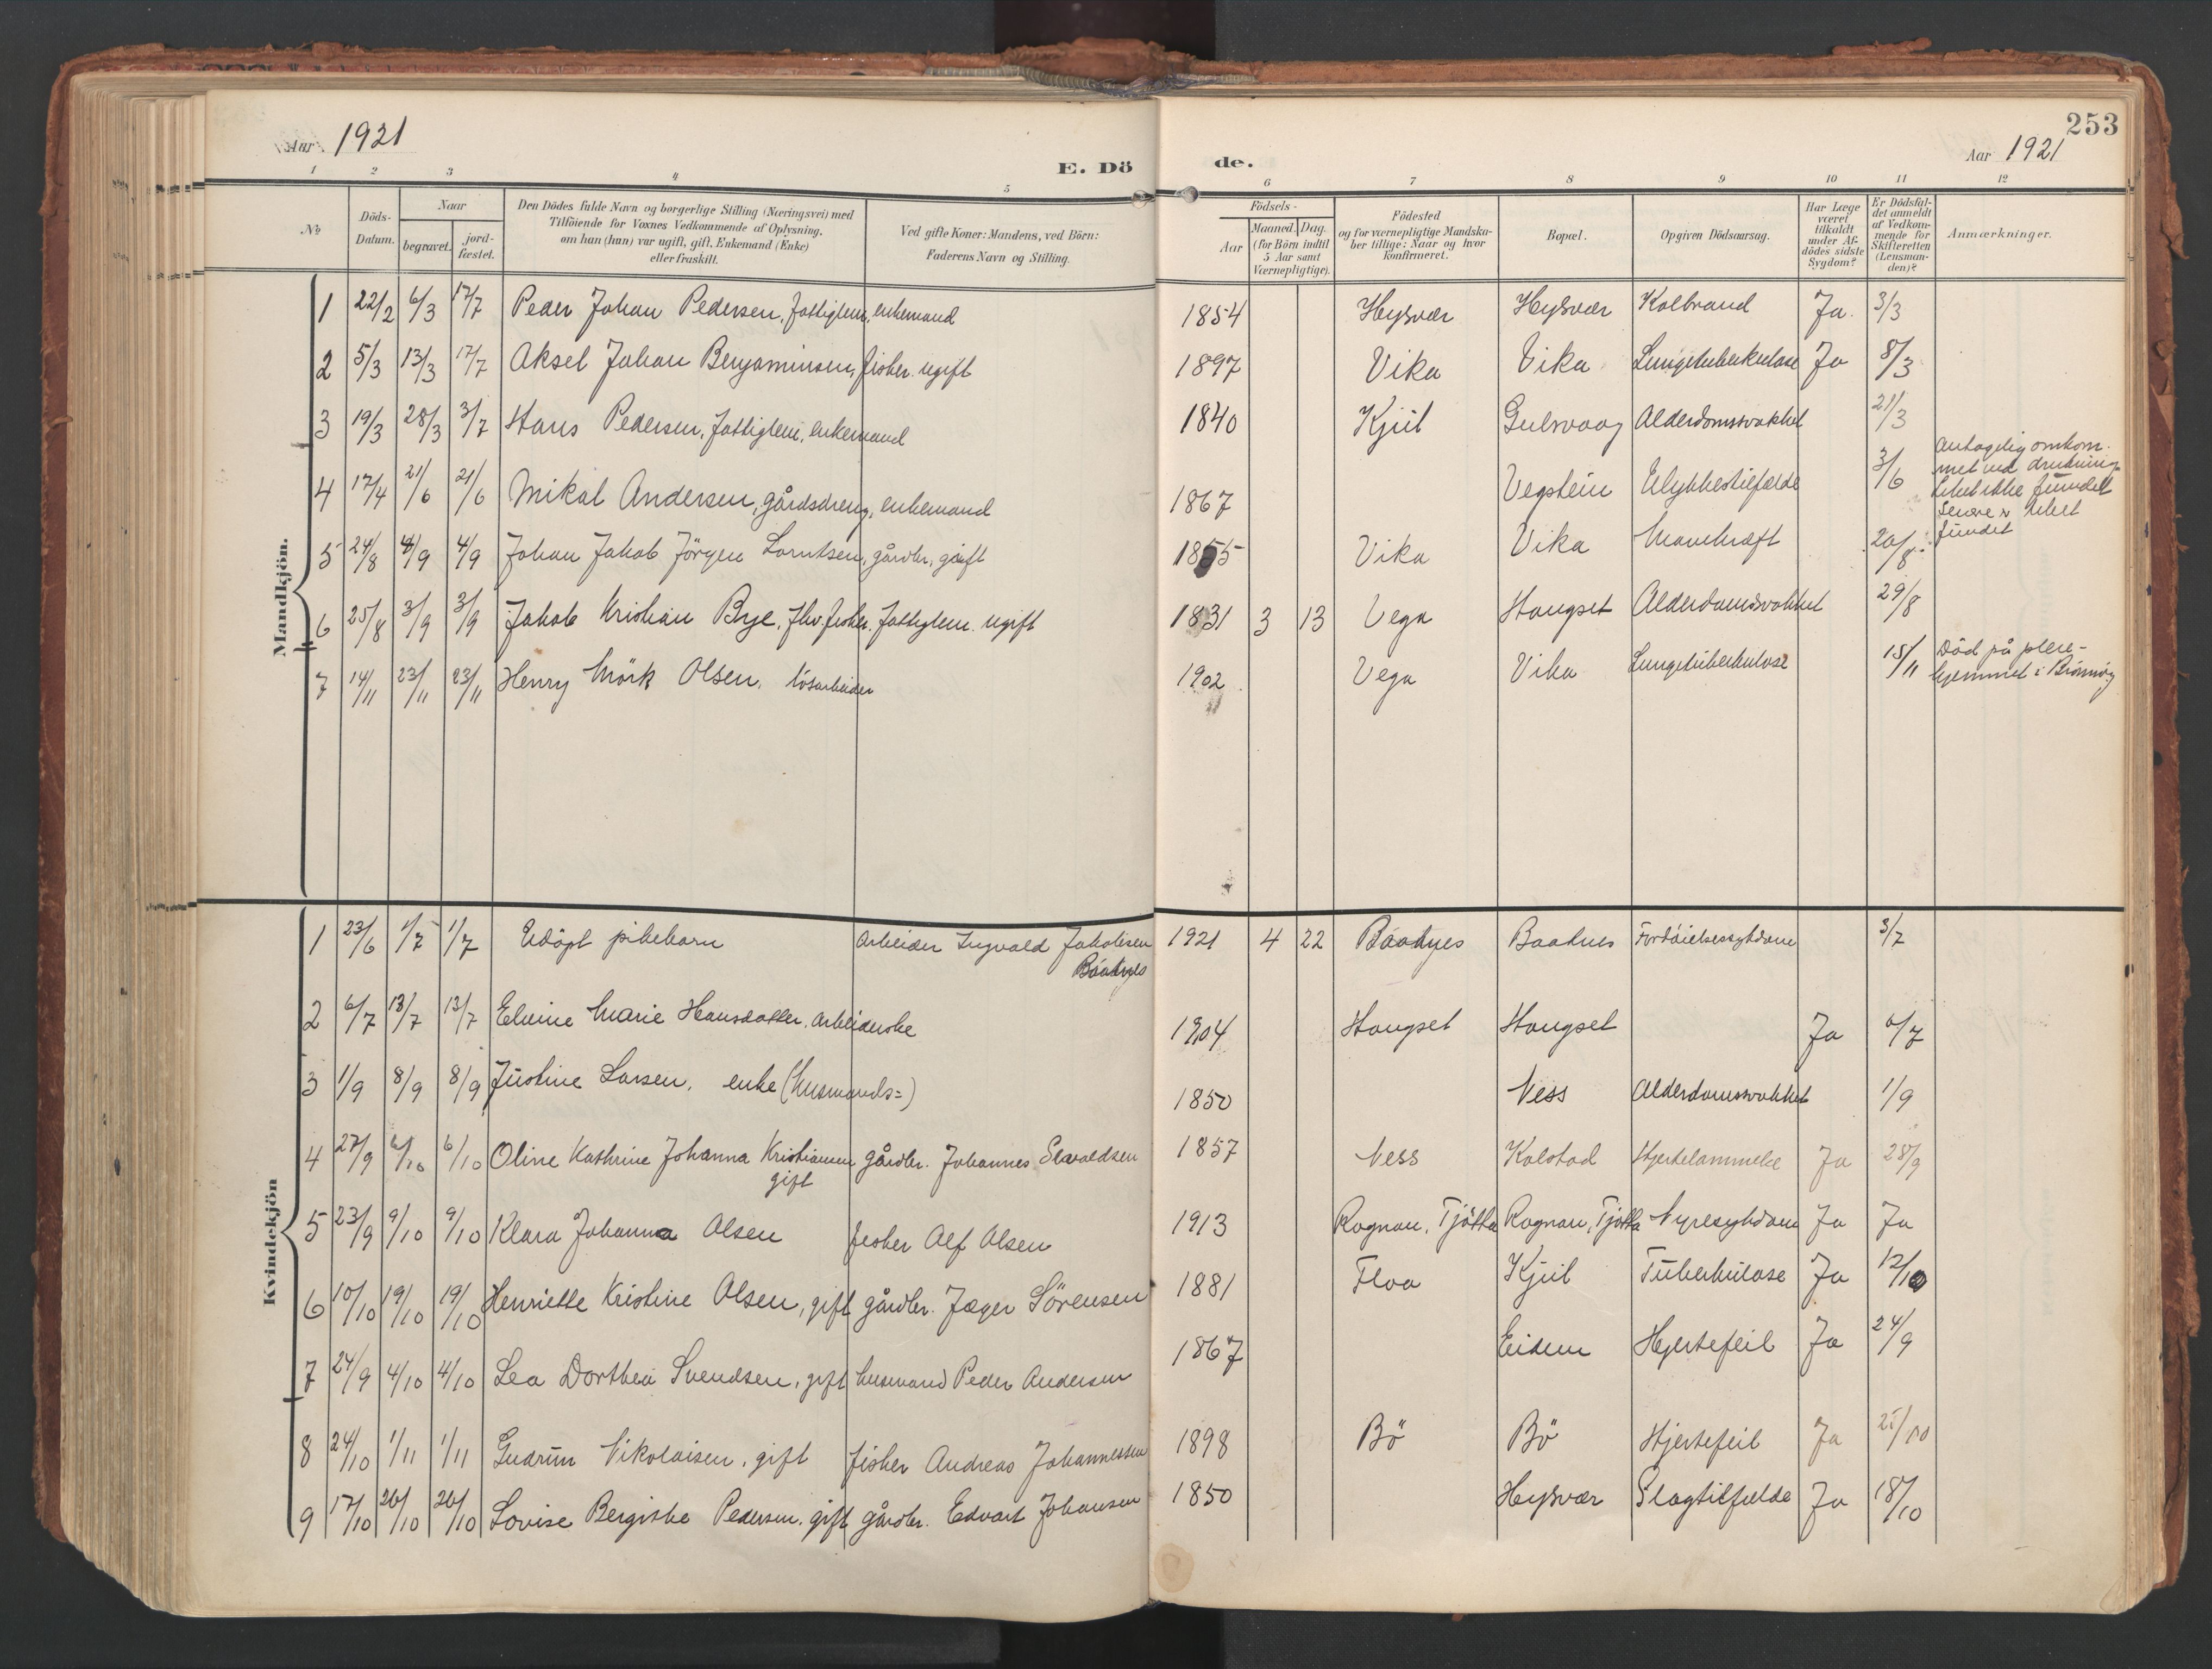 Aar 1921
E. Dö
de.
253
Aar 1921
1 2 3 4 5 6 7 8 9 10 11 12
№
Döds-Datum.
Naar
begravet.
jord-fæstet.
Den Dödes fulde Navn og borgerlige Stilling (Næringsvei) med
Tilföiende for Voxnes Vedkommende af Oplysning,
om han (hun) var ugift, gift, Enkemand (Enke)
eller fraskilt.
Ved gifte Koner: Mandens, ved Börn:
Faderens Navn og Stilling.
Födsels-
Aar
Maaned. Dag.
(for Börn indtil
5 Aar samt
Værnepligtige).
Födested
og for værnepligtige Mandska-
ber tillige: Naar og hvor
konfirmeret.
Bopæl.
Opgiven Dödsaarsag.
Har Læge
været
tilkaldt
under Af-
dödes sidste
Sygdom?
Er Dödsfal-
det anmeldt
af Vedkom-
mende for
Skifteretten
(Lensman-
den)?
Anmærkninger.
Mandkjön.
1 22/2 6/3 17/7 Peder Johan Pedersen, fattiglem, enkemand 1854 Hysvær Hysvær Kolbrand Ja. 3/3
2 5/3 13/3 17/7 Aksel Johan Benjaminsen, fisker. ugift 1897 Vika Vika Lungetuberkulose Ja 8/3
3 19/3 28/3 3/7 Hans Pedersen, fattiglem, enkemand 1840 Kjül Gulsvaag Alderdomssvakhet 21/3
4 17/4 21/6 21/6 Mikal Andersen, gårdsdreng, enkemand 1867 Vegstein Ulykkestilfælde 3/6 Antagelig omkom-
met ved drukning
Liket ikke fundet
Senere liket
fundet
5 24/8 4/9 4/9 Johan Jakob Jörgen Lorntsen, gårdbr, gift 1855 Vika Vika Mavekræft 26/8
6 25/8 3/9 3/9 Jakob Kristian Bye, fhv. fisker. fattiglem. ugift 1831 3 13 Vega Hongset Alderdomssvakhet 29/8
7 14/11 23/11 23/11 Henry Mörk Olsen, lösarbeider 1902 Vega Vika Lungetuberkulose 15/11 Död på pleie-
hjemmet i Brönnöy
Kvindekjön
1 23/6 1/7 1/7 Udöpt pikebarn Arbeider Ingvald Jakobsen
Baatnes
1921 4 22 Baatnes Baatnes Fordöielsessykdom 3/7
2 6/7 13/7 13/7 Elvine Marie Hansdatter. arbeiderske 1904 Hongset Hongset Ja 6/7
3 1/9 8/9 8/9 Justine Larsen, enke (husmands=) 1850 Ness Alderdomssvakhet 1/9
4 27/9 6/10 6/10 Oline Kathrine Johanna Kristiansen gårdbr. Johannes Sevaldsen 1857 Ness Kolstad Hjertelammelse Ja 28/9
gift
5 23/9 9/10 9/10 Klara Johanna Olsen fisker Alf Olsen 1913 Rognan, Tjötta Rognan, Tjötta Nyresykdom Ja Ja
6 10/10 19/10 19/10 Henriette Kristine Olsen, gift gårdbr. Jæger Sörensen 1881 Floa Kjül Tuberkulose Ja 12/10
7 24/9 4/10 4/10 Lea Dorthea Svendsen, gift husmand Peder Andersen 1867 Eidem Hjertefeil Ja 24/9
8 24/10 1/11 1/11 Gudrun Nikolaisen, gift fisker Andreas Johannessen 1898 Bö Bö Hjertefeil Ja 25/10
9 17/10 26/10 26/10 Lovise Bergitte Pedersen. gift gårdbr. Edvart Johansen 1850 Hysvær Slagtilfælde Ja 18/10